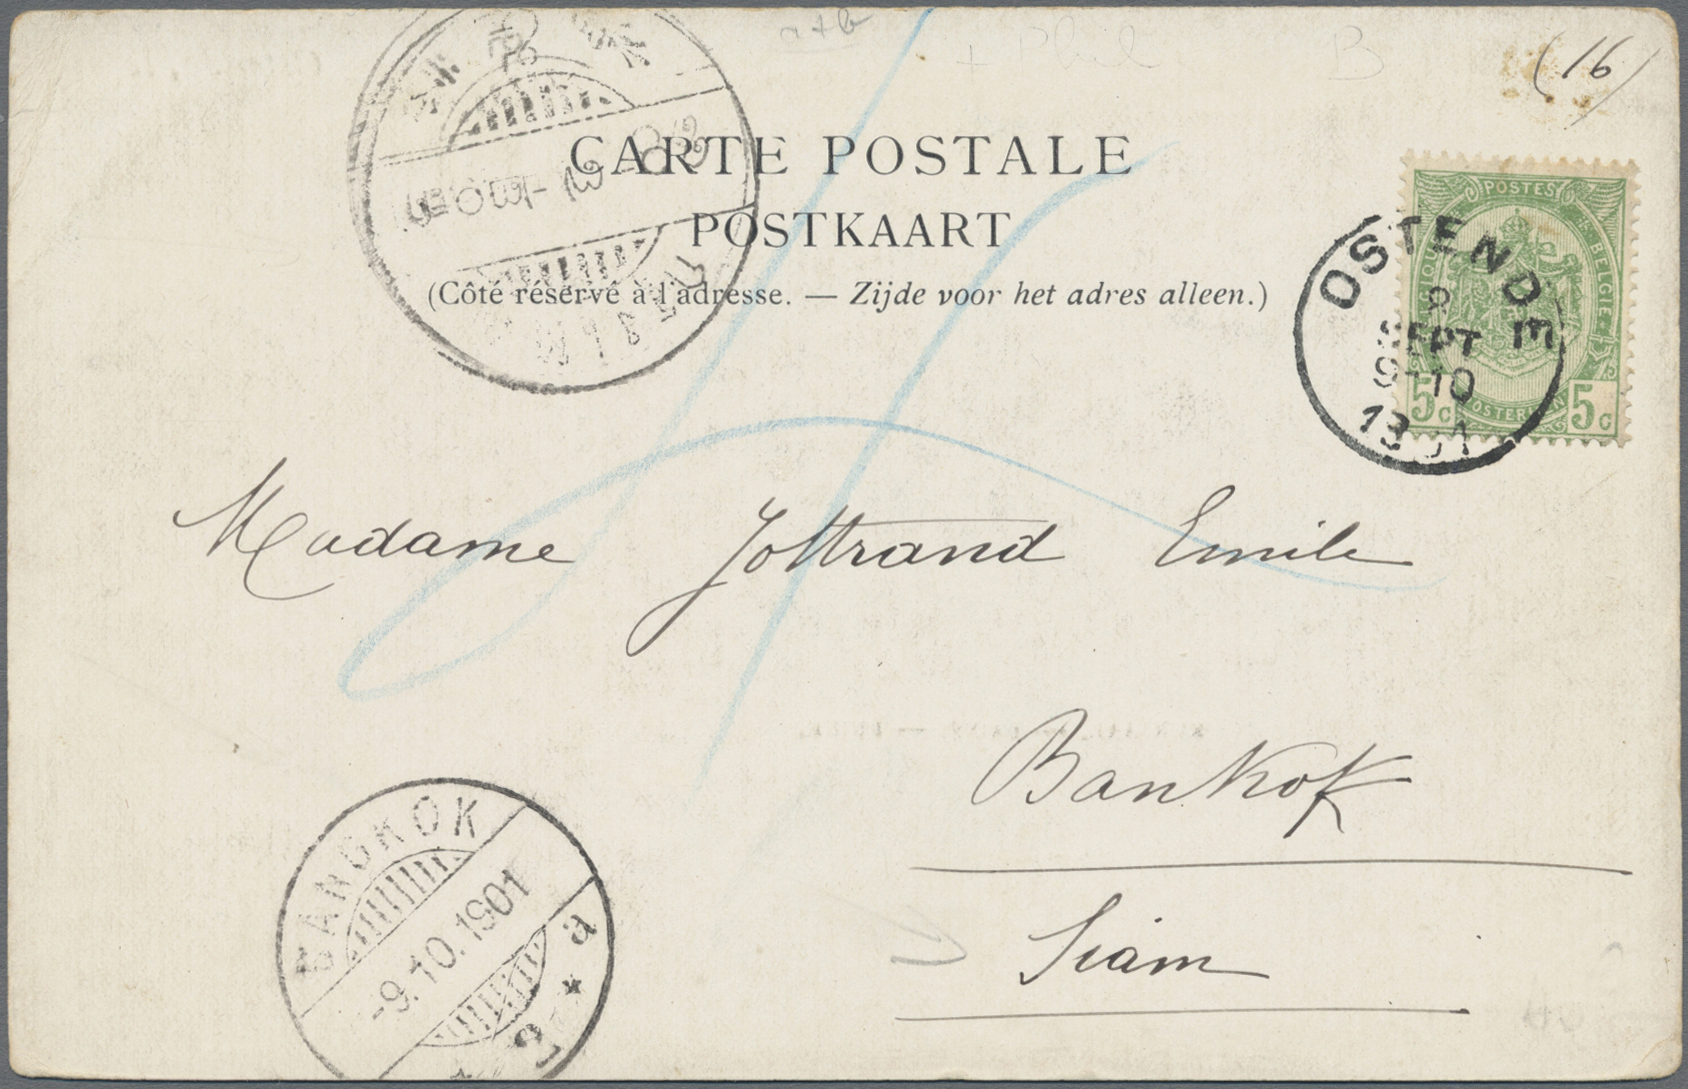 a+b
+ Phil
B
(16)
CARTE POSTALE
POSTKAART
(Côté réservé à l'adresse. — Zijde voor het adres alleen.)
POSTES
BELGIE
5c 5c
OSTENDE
8
SEPT
9-10
Madame Jottrand Emile
Bankok
Siam
BANGKOK
-9.10.1901
a